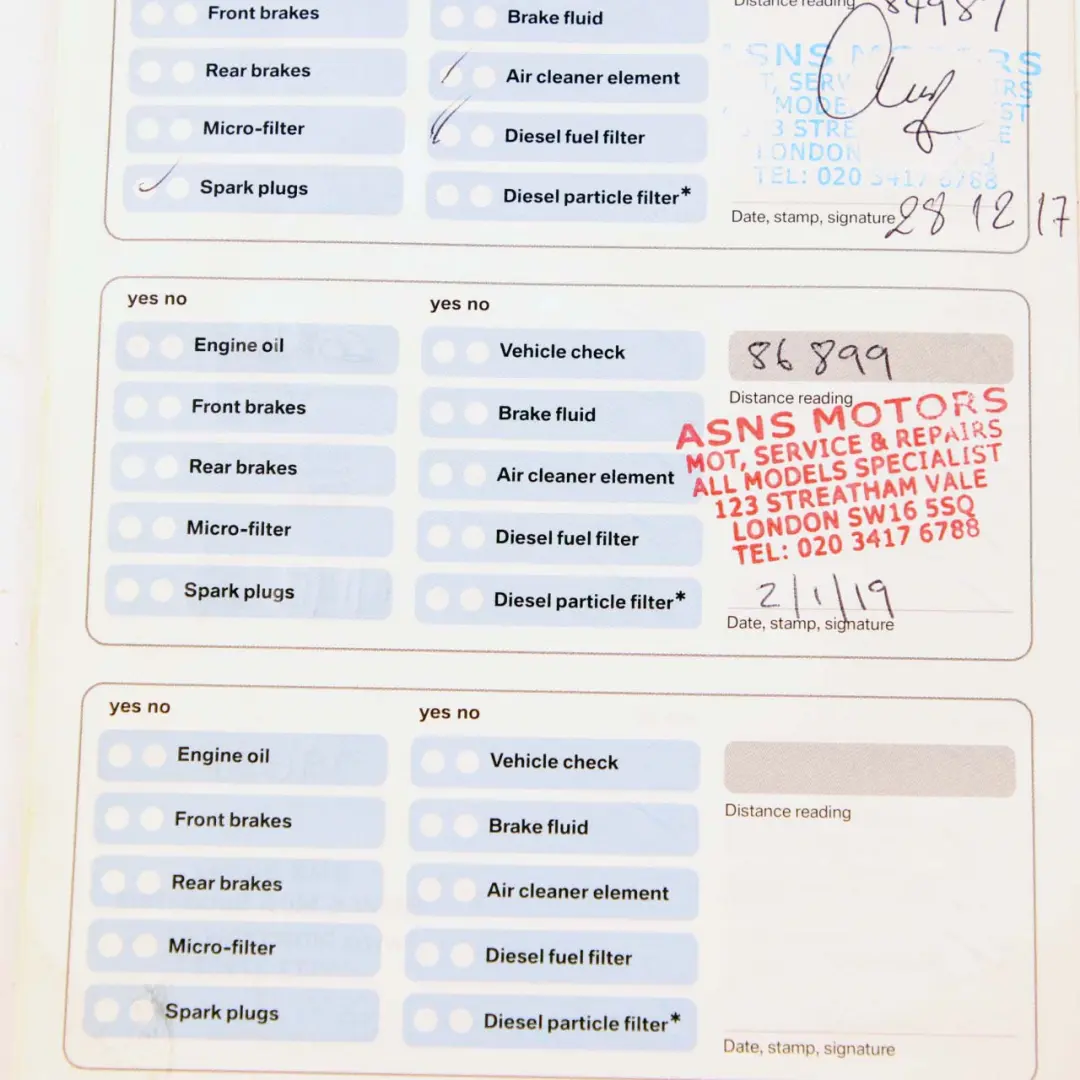 Front brakes
Rear brakes
Micro-filter
Spark plugs
Brake fluid
Air cleaner element
Diesel fuel filter
Diesel particle filter*
Distance reading
84987
ASNS MOTORS
LONDON
TEL: 020 3417 6788
Date, stamp, signature 28 12 17
yes no
Engine oil
Front brakes
Rear brakes
Micro-filter
Spark plugs
yes no
Vehicle check
Brake fluid
Air cleaner element
Diesel fuel filter
Diesel particle filter*
86899
Distance reading
ASNS MOTORS
MOT, SERVICE & REPAIRS
ALL MODELS SPECIALIST
123 STREATHAM VALE
LONDON SW16 5SQ
TEL: 020 3417 6788
2/1/19
Date, stamp, signature
yes no
Engine oil
Front brakes
Rear brakes
Micro-filter
Spark plugs
yes no
Vehicle check
Brake fluid
Air cleaner element
Diesel fuel filter
Diesel particle filter*
Distance reading
Date, stamp, signature